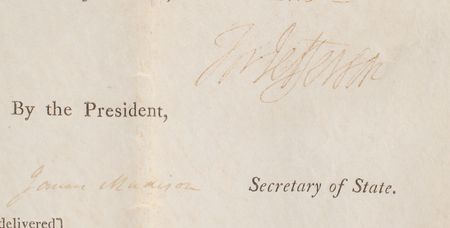 Th Jefferson
By the President,
James Madison Secretary of State.
delivered]